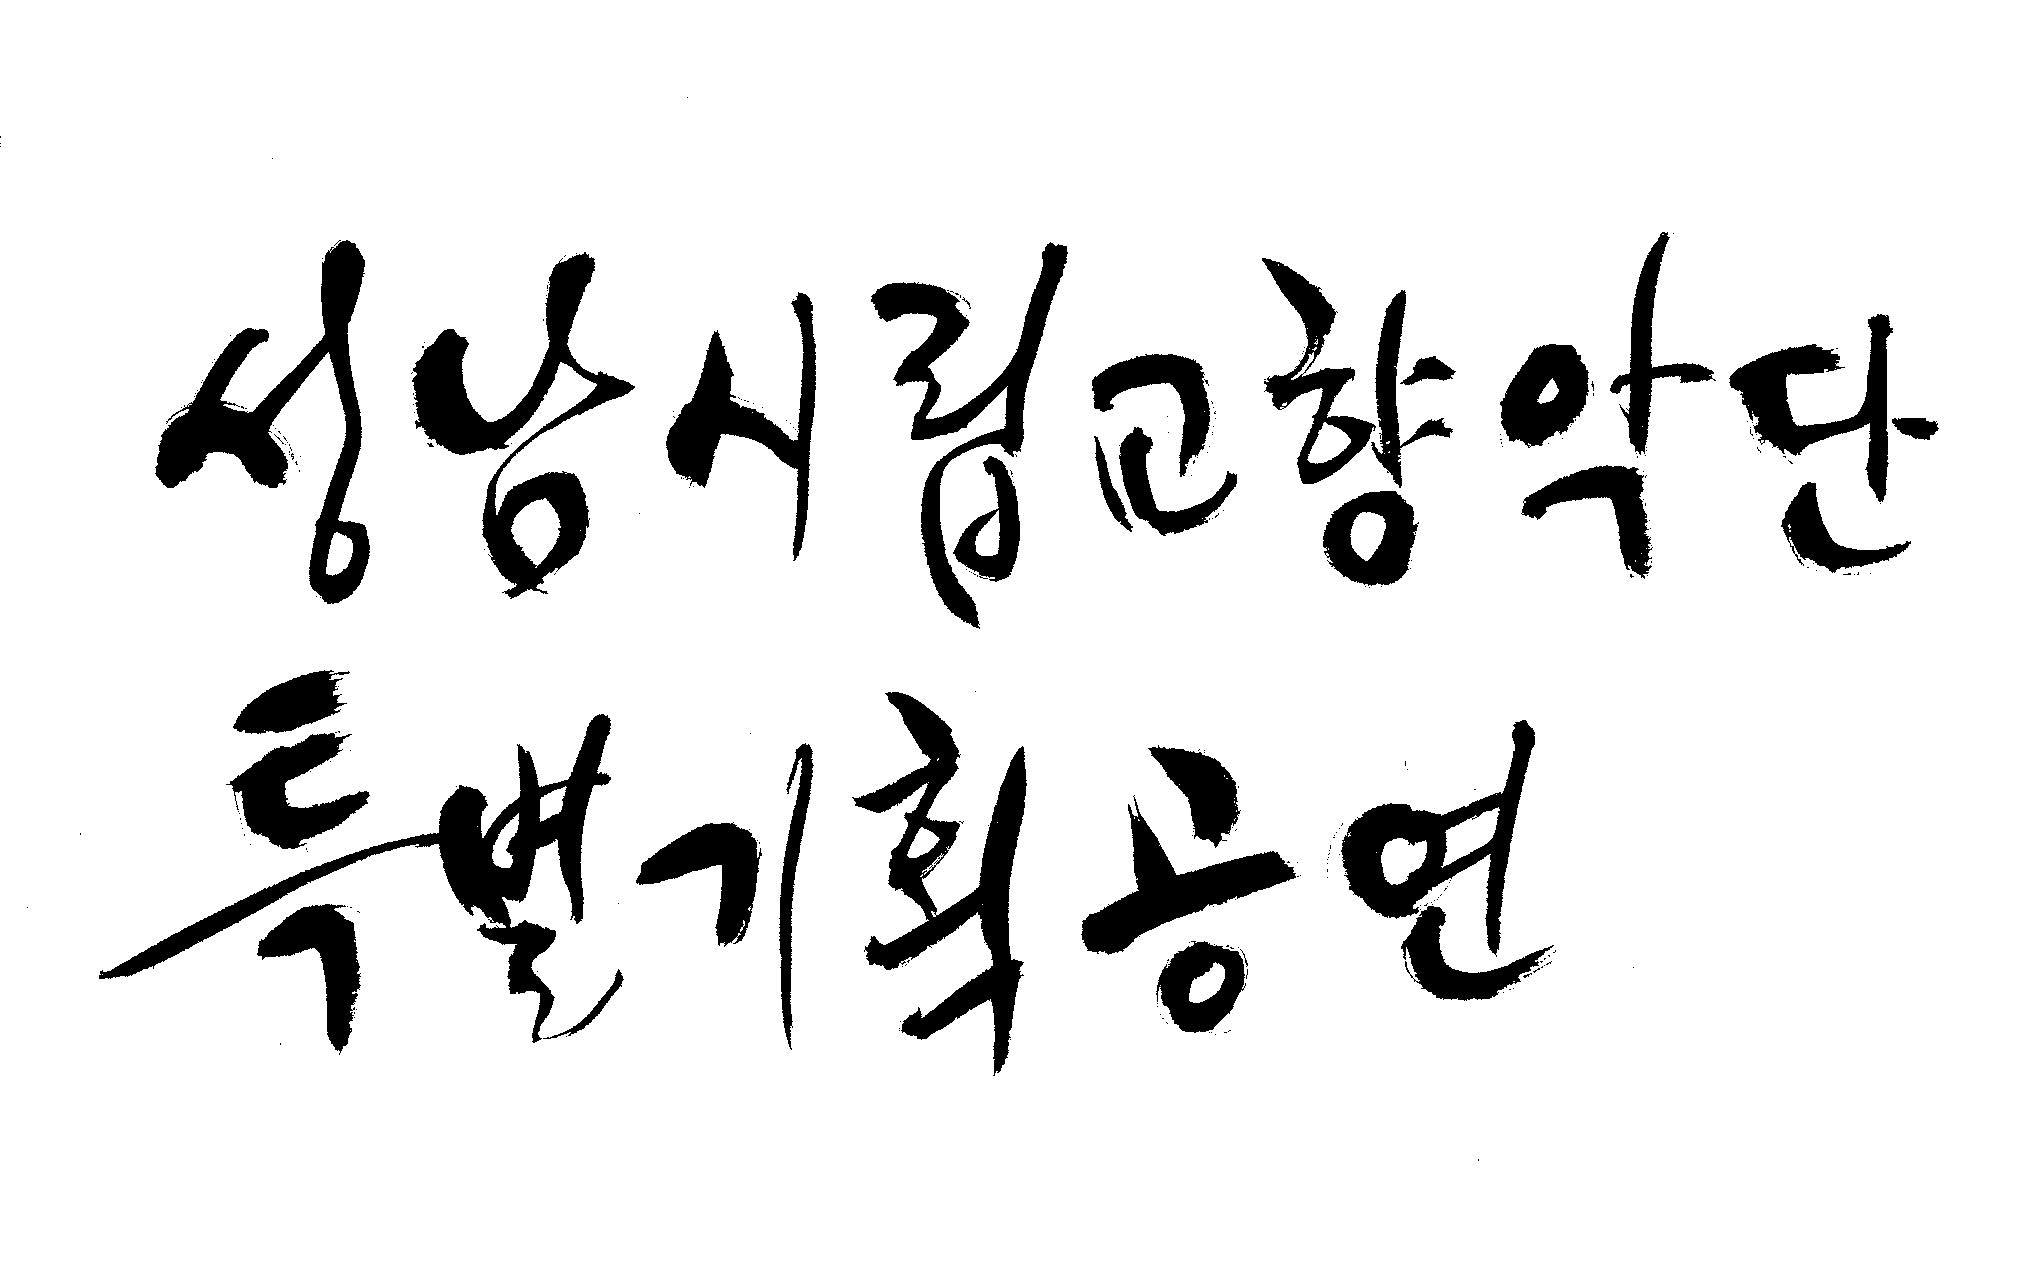 성남시립교향악단
특별기획공연